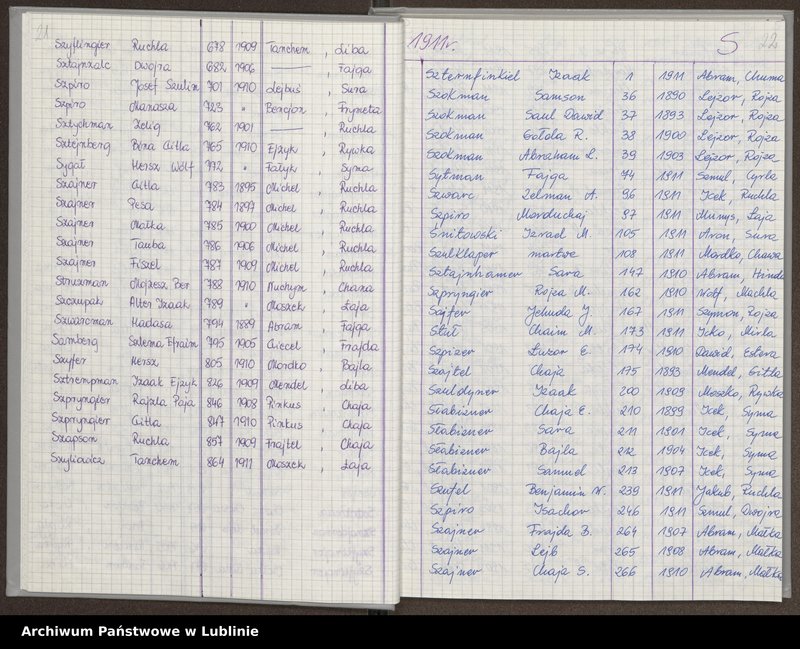 21
Szyflingier Ruchla 678 1909 Tanchem, Liba
Sztajnzalc Dwojra 682 1906 — Fajga
Szpiro Josef Szulim 701 1910 Lejbuś, Sura
Szpiro Manasza 723 " Bencjon, Frymeta
Sztychman Zelig 762 1901 — Ruchla
Sztejnberg Bina Gitla 765 1910 Ejzyk, Rywka
Sygał Hersz Wolf 772 " Fałyk, Syma
Szajner Gitla 783 1895 Michel, Ruchla
Szajner Pesa 784 1897 Michel, Ruchla
Szajner Małka 785 1900 Michel, Ruchla
Szajner Tauba 786 1906 Michel, Ruchla
Szajner Fiszel 787 1909 Michel, Ruchla
Struzman Mojżesz Ber 788 1910 Nuchym, Chana
Szczupak Alter Izaak 789 " Moszek, Łaja
Szwarcman Hadasa 794 1889 Abram, Fajga
Samberg Szlema Efraim 795 1905 Giecel, Frajda
Szyffer Hersz 805 1910 Mordko, Bajla
Sztrempman Izaak Ejzyk 826 1909 Mendel, Liba
Szpryngier Rajzla Paja 846 1908 Pinkus, Chaja
Szpryngier Gitla 847 1910 Pinkus, Chaja
Szapson Ruchla 857 1909 Frajtel, Chaja
Szyliowicz Tanchem 864 1911 Moszek, Łaja
1911r. S 22
Szternfinkiel Izaak 1 1911 Abram, Chuma
Szokman Samson 36 1890 Lejzor, Rojza
Szokman Saul Dawid 37 1893 Lejzor, Rojza
Szokman Gołda R. 38 1900 Lejzor, Rojza
Szokman Abraham L. 39 1903 Lejzor, Rojza
Sytman Fajga 74 1911 Semul, Cyrla
Szwarc Zelman A. 96 1911 Icek, Ruchla
Szpiro Morduchaj 97 1911 Munys, Łaja
Snitowski Izrael M. 105 1911 Aron, Sura
Szulklaper martwe 108 1911 Mordko, Chawa
Sztajnhamer Sara 147 1910 Abram, Hinda
Szpryngier Rojza M. 162 1910 Wolf, Machla
Szifer Jehuda J. 167 1911 Szymon, Rojza
Stul Chaim M. 173 1911 Icko, Mirla
Szpizer Luzor E. 174 1910 Dawid, Estera
Szajtel Chaja 175 1893 Mendel, Gitla
Szuldyner Izaak 200 1909 Moszko, Rywka
Słabizner Chaja E. 210 1899 Icek, Syma
Słabizner Sara 211 1901 Icek, Syma
Słabizner Bajla 212 1904 Icek, Syma
Słabizner Samuel 213 1907 Icek, Syma
Szufel Benjamin W. 239 1911 Jakub, Ruchla
Szpiro Isachor 246 1911 Semul, Dwojra
Szajner Frajda B. 264 1907 Abram, Małka
Szajner Lejb 265 1908 Abram, Małka
Szajner Chaja S. 266 1910 Abram, Małka
Archiwum Państwowe w Lublinie